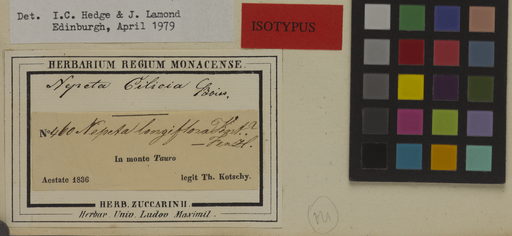 Det. I.C. Hedge & J. Lamond
Edinburgh, April 1979
ISOTYPUS
HERBARIUM REGIUM MONACENSE.
Nepeta Cilicia Boiss.
No 460 Nepeta longiflora
In monte Tauro
Aestate 1836 legit Th. Kotschy.
HERB. ZUCCARINII.
Herbar. Univ. Ludov. Maximil.